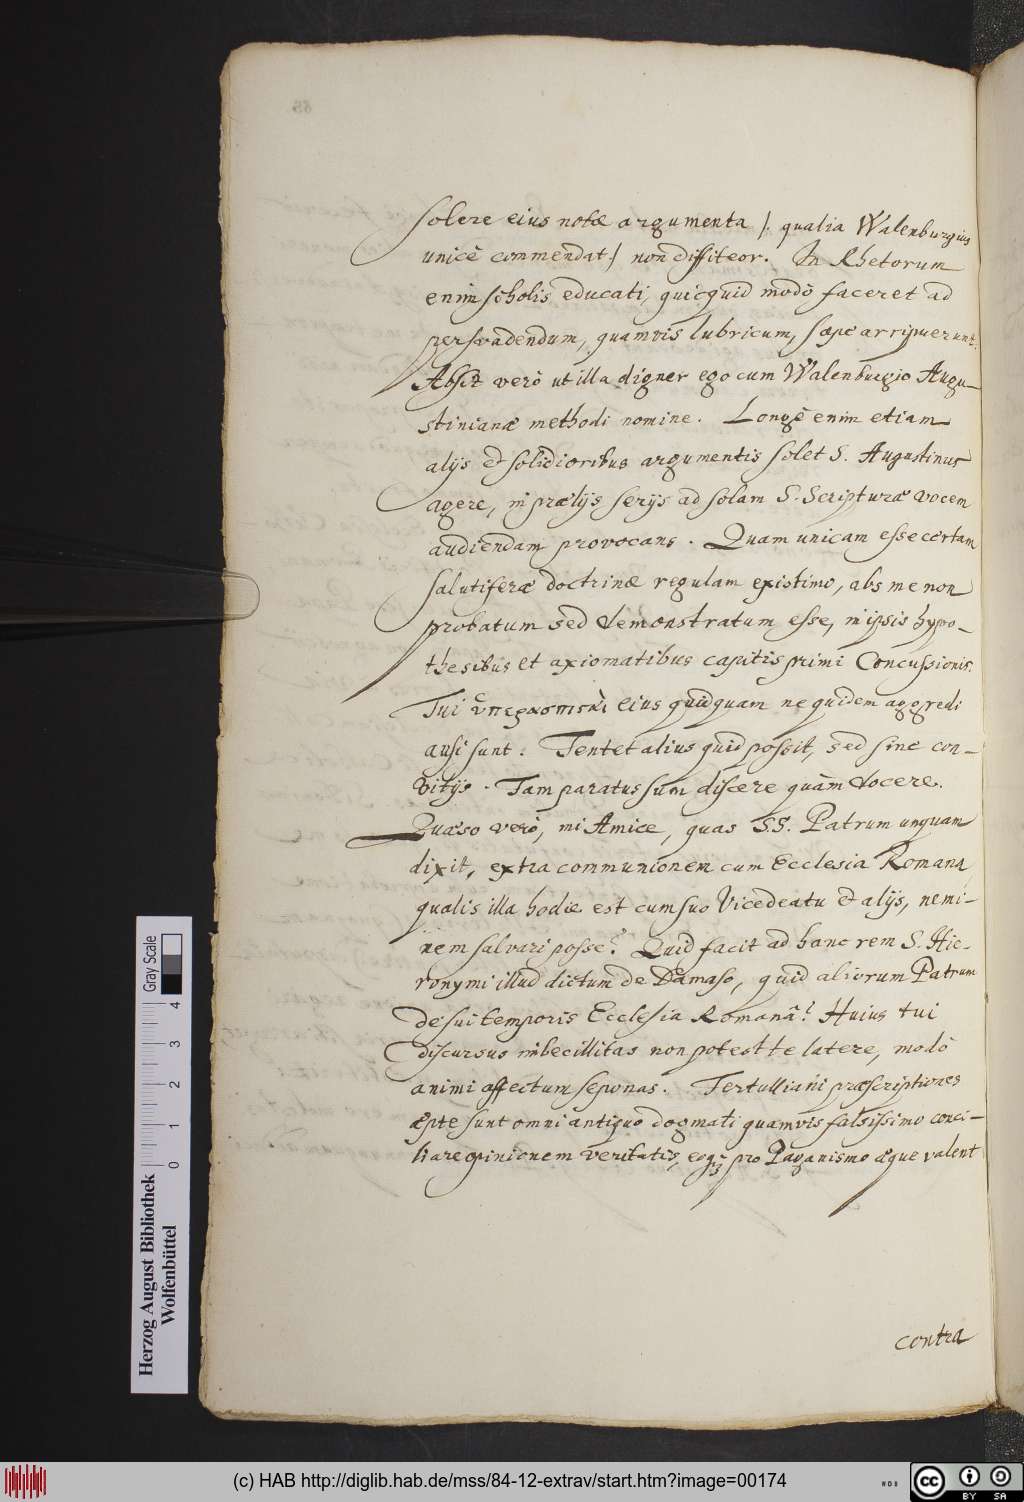 solere eius notæ argumenta /. qualia Walenburgius
unicè commendat / non diffiteor. In Rhetorum
enim scholis educati, quicquid modò faceret ad
persvadendum, quamvis lubricum, sæpe arripuerunt.
Absit verò ut illa digner ego cum Walenburgio Augu-
stinianæ methodi nomine. Longè enim etiam
alijs et solidioribus argumentis solet S. Augustinus
agere, in prælijs serijs ad solam S. Scripturæ vocem
audiendam provocans. Quam unicam esse certam
salutiferæ doctrinæ regulam existimo, abs me non
probatum sed demonstratum esse, in ipsis hypo-
thesibus et axiomatibus capitis primi Concussionis.
Tui ὑπερασπισταὶ eius quidquam ne quidem aggredi
ausi sunt. Tentet alius quid possit, sed sine con-
vitijs. Tam paratus sum discere quàm docere.
Quæso verò, mi Amice, quas S.S. Patrum unquam
dixit, extra communionem cum Ecclesia Romana,
qualis illa hodie est cum suo Vicedeatu et alijs, nemi-
nem salvari posse? Quid facit ad hanc rem S. Hie-
ronymi illud dictum de Damaso, quid aliorum Patrum
de sui temporis Ecclesia Romanâ? Huius tui
discursus imbecillitas non potest te latere, modò
animi affectum seponas. Tertulliani præscriptiones
æpte sunt omni antiquo dogmati quamvis falsissimo conci-
liare opinionem veritatis, eoq; pro Paganismo æque valent
contra
Herzog August Bibliothek
Wolfenbüttel
0 1 2 3 4
Gray Scale
(c) HAB http://diglib.hab.de/mss/84-12-extrav/start.htm?image=00174
cc
BY SA